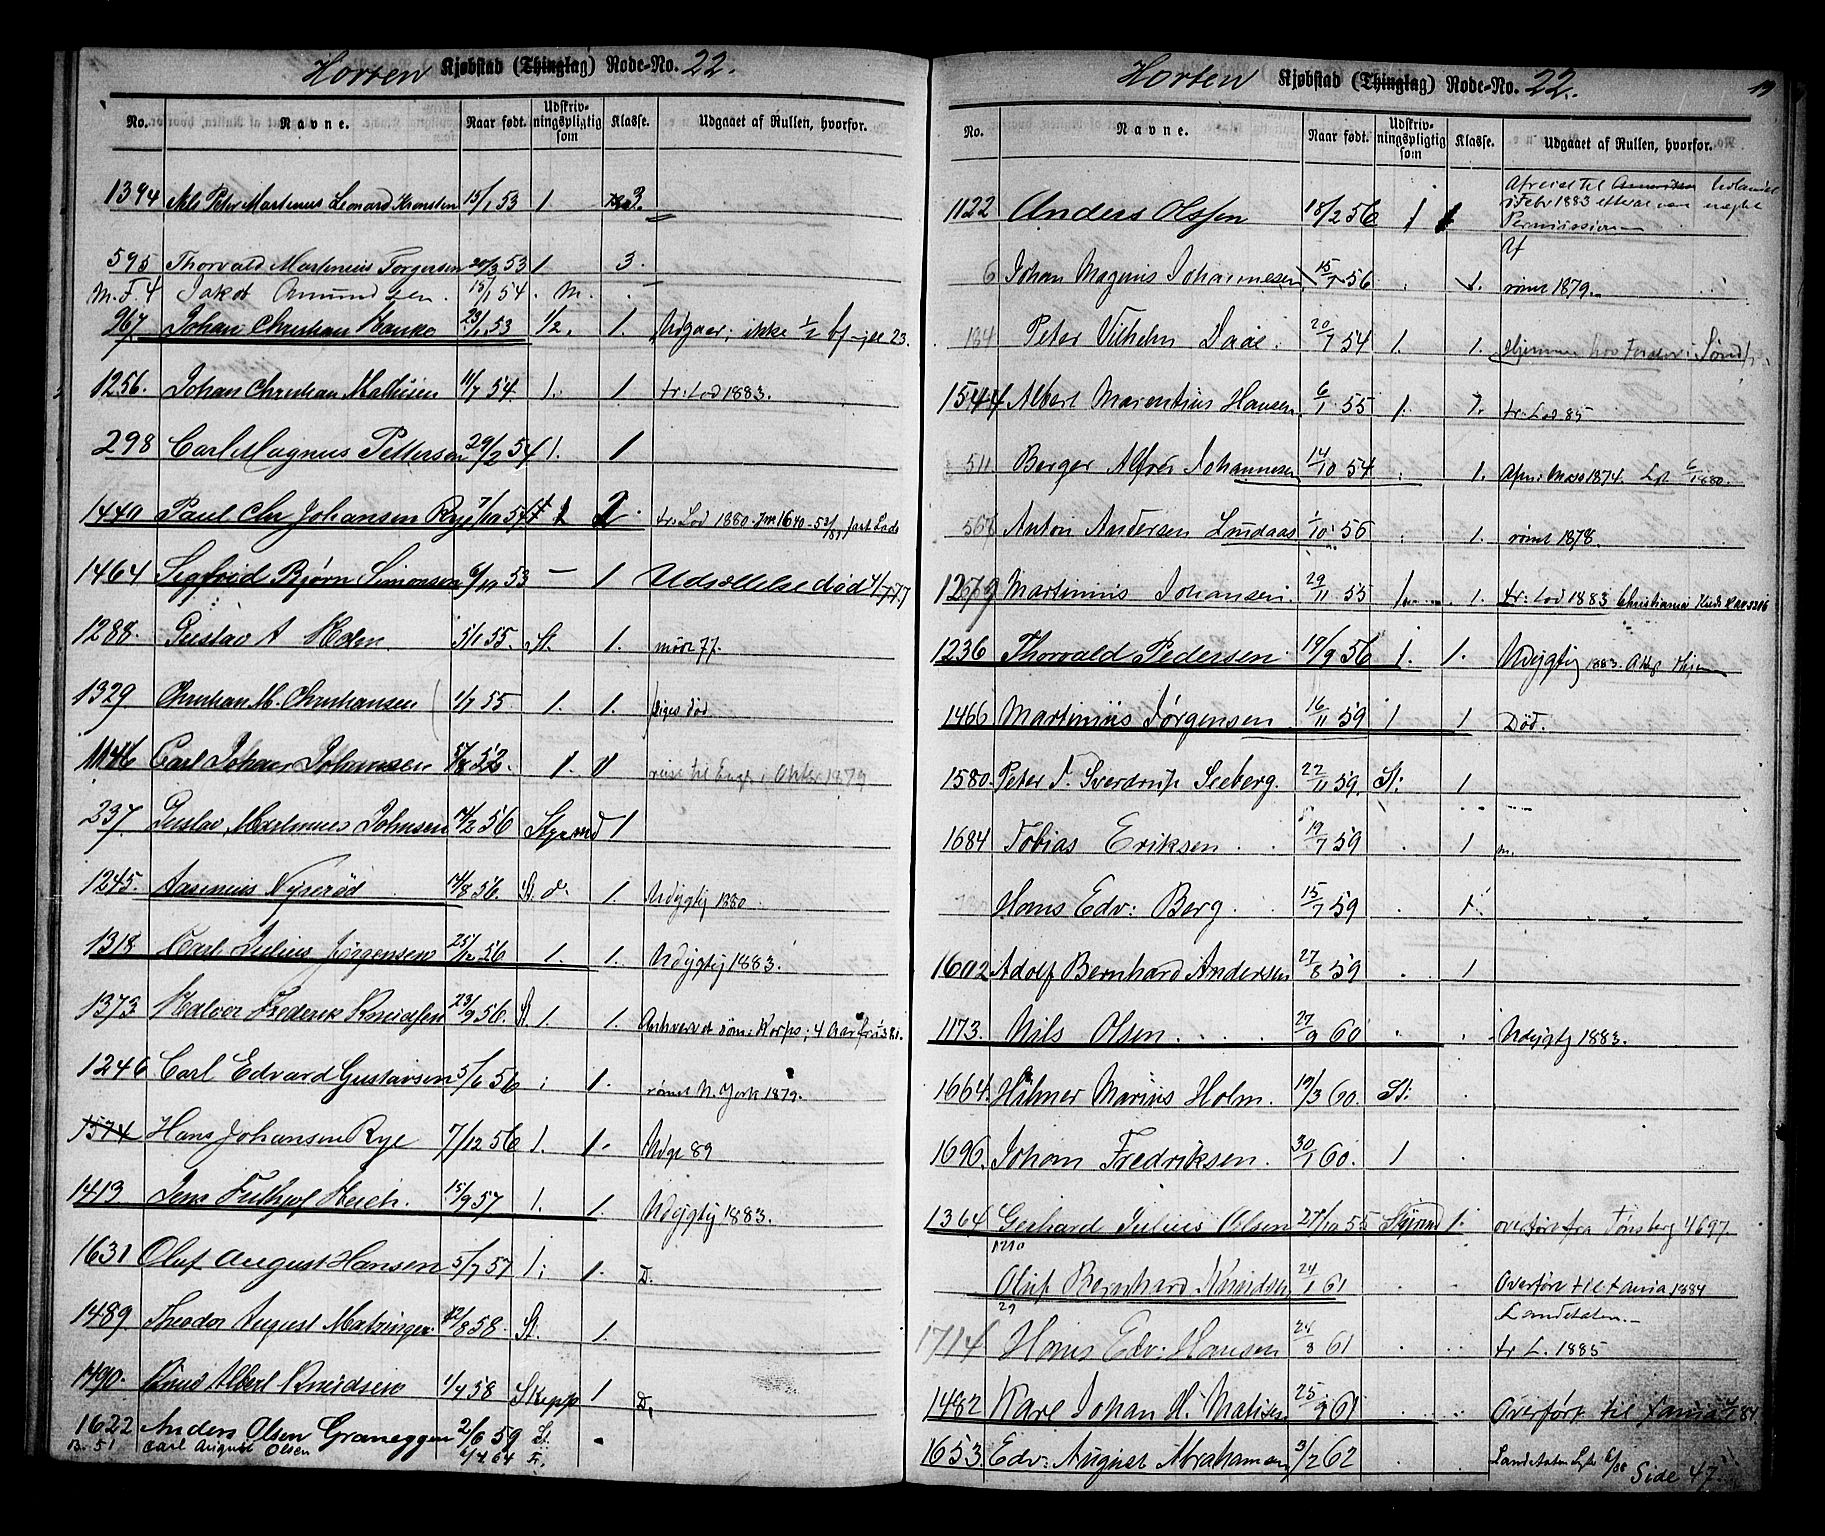 Horten Kjøbstad (Thinglag) Rode-No. 22.
No. Navne. Naar født. Udskriv-ningspligtig som Klasse. Udgaaet af Rullen, hvorfor.
1394 Peter Martinus Leonard 15/1 53 1 3.
595 Thorvald Martinius Torgersen 20/3 53 1 3.
M. F. 4 Jakob Amundsen. 15/1 54. M.
967. Johan Christian Hanko 23/1 53 1/2. 1. Udgaar; ikke 1/2 bf 23.
1256. Johan Christian Mathisen 11/7 54. 1. 1 tr: Lod 1883.
298 Carl Magnus Pettersen 29/2 54 1. 1
1440 Paul Chr Johansen Rye 7/10 54 1 2. tr: Lod 1880.
1464 Sigfred Bjørn Simonsen 6/10 53 – 1 Udsættelse død
1288. Gustav A 5/1 55. St. 1. 77.
1329 Christian M. Christiansen 1/7 55 1. 1. død
1146 Carl Johan Johansen 5/8 52. 1. 1 reist til Engl. i Oktbr 1879
237. Gustav Johnsen 14/2 56 Styrmd 1
1245. Nyserød 14/8 56. St. 1. Udygtig 1880
1318 Carl Julius Jørgensen 25/2 56 1. 1. Udygtig 1883.
1373. Halvor Frederik Knudsen 23/9 56. St. 1. 1.
1246 Carl Edvard Gustavsen 5/6 56 1. rømt N. York 1879.
1574 Hans Johansen Rye 7/12 56 1. 1. Udgr 89
1413 Jens 15/9 57 1. 1. Udygtig 1883.
1631 Oluf August Hansen 5/7 57 1. 1. D.
1489 Theodor August Matzinger 12/8 58. St. 1.
1490. Knud Albert Knudsen 1/4 58 Skipp 1 D.
1622 Anders Olsen Graneggen 2/6 59 St.
B. 51 Carl August Olsen 6/4 64 F.
Horten Kjøbstad (Thinglag) Rode-No. 22. 19
No. Navne. Naar født. Udskriv-ningspligtig som Klasse. Udgaaet af Rullen, hvorfor.
1122 Anders Olssen 18/2 56 1 1 Afreist til
Febr 1883 efter at være nægtet
Permission
6 Johan Magnus Johannesen 15/7 56 1. rømt 1879.
184 Peter Vilhelm Daae. 20/7 54 1. 1.
1544 Albert Marentius Hansen 6/1 55 1. 1. tr. Lod. 85
511 Berger Alfred Johannesen 14/10 54 1. 1874. 1880.
Anton Andersen Lindaas 1/10 56 1. rømt 1878.
1279 Martinius Johansen. 29/11 55 1. 1. tr: Lod 1883 Christiania
1236 Thorvald Pedersen. 19/9 56 1. 1. Udygtig 1883.
1466 Martinius Jørgensen 16/11 59 1 1 Død.
1580. Peter F. Sverdrup Seeberg. 22/11 59. St: 1
1684 Tobias Eriksen. 19/7 59 1
Hans Edv: Berg. 15/7 59 1.
1602 Adolf Bernhard Andersen 27/8 59 1
1173. Nils Olsen. 27/9 60 Udygtig 1883.
1664. Hilmer Marius Holm. 19/3 60. St:
1696. Johan Fredriksen. 30/1 60. 1
1364 Gerhard Julius Olsen 27/12 55 Styrmd 1. overført fra Tønsberg 4697.
1210
Oluf Bernhard Knudsen 24/1 61 Overført til Fania 1884
29 Landetaten.
1714 Hans Edv: Hansen 24/8 61 tr L. 1885
1482 Karl Johan H. Matisen 25/9 61 Overført til Fania 84
1653. Edv: August Abrahamsen 3/2 62 Landetaten
Side 47.